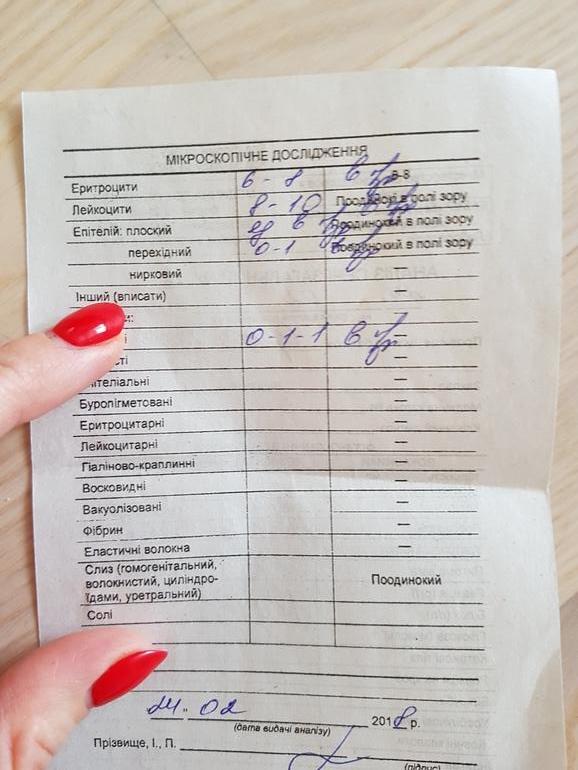 МІКРОСКОПІЧНЕ ДОСЛІДЖЕННЯ
Еритроцити 6 - 8 в 6-8
Лейкоцити 8 - 10 Поодинокі в полі зору
Епітелій: плоский ед в Поодинокий в полі зору
перехідний 0-1 Поодинокий в полі зору
нирковий —
Інший (вписати) —
0-1-1 в —
—
—
Буропігметовані —
Еритроцитарні —
Лейкоцитарні —
Гіаліново-краплинні —
Восковидні —
Вакуолізовані —
Фібрин —
Еластичні волокна —
Слиз (гомогенітальний,
волокнистий, циліндро- Поодинокий
їдами, уретральний)
Солі
24. 02 2018 р.
(дата видачі аналізу)
Прізвище, І., П.
(підпис)